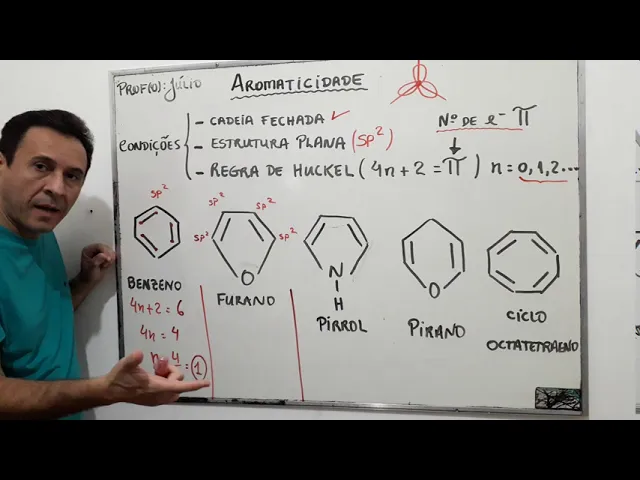 PROF(O): JÚLIO
AROMATICIDADE
CONDIÇÕES
- CADEIA FECHADA ✓
- ESTRUTURA PLANA (SP²)
- REGRA DE HUCKEL (4n + 2 = π) n = 0, 1, 2...
Nº DE e⁻ π
SP²
SP² SP²
SP² SP²
O
N
H
O
BENZENO
FURANO
PIRROL
PIRANO
CICLO
OCTATETRAENO
4n + 2 = 6
4n = 4
n = 4 = 1